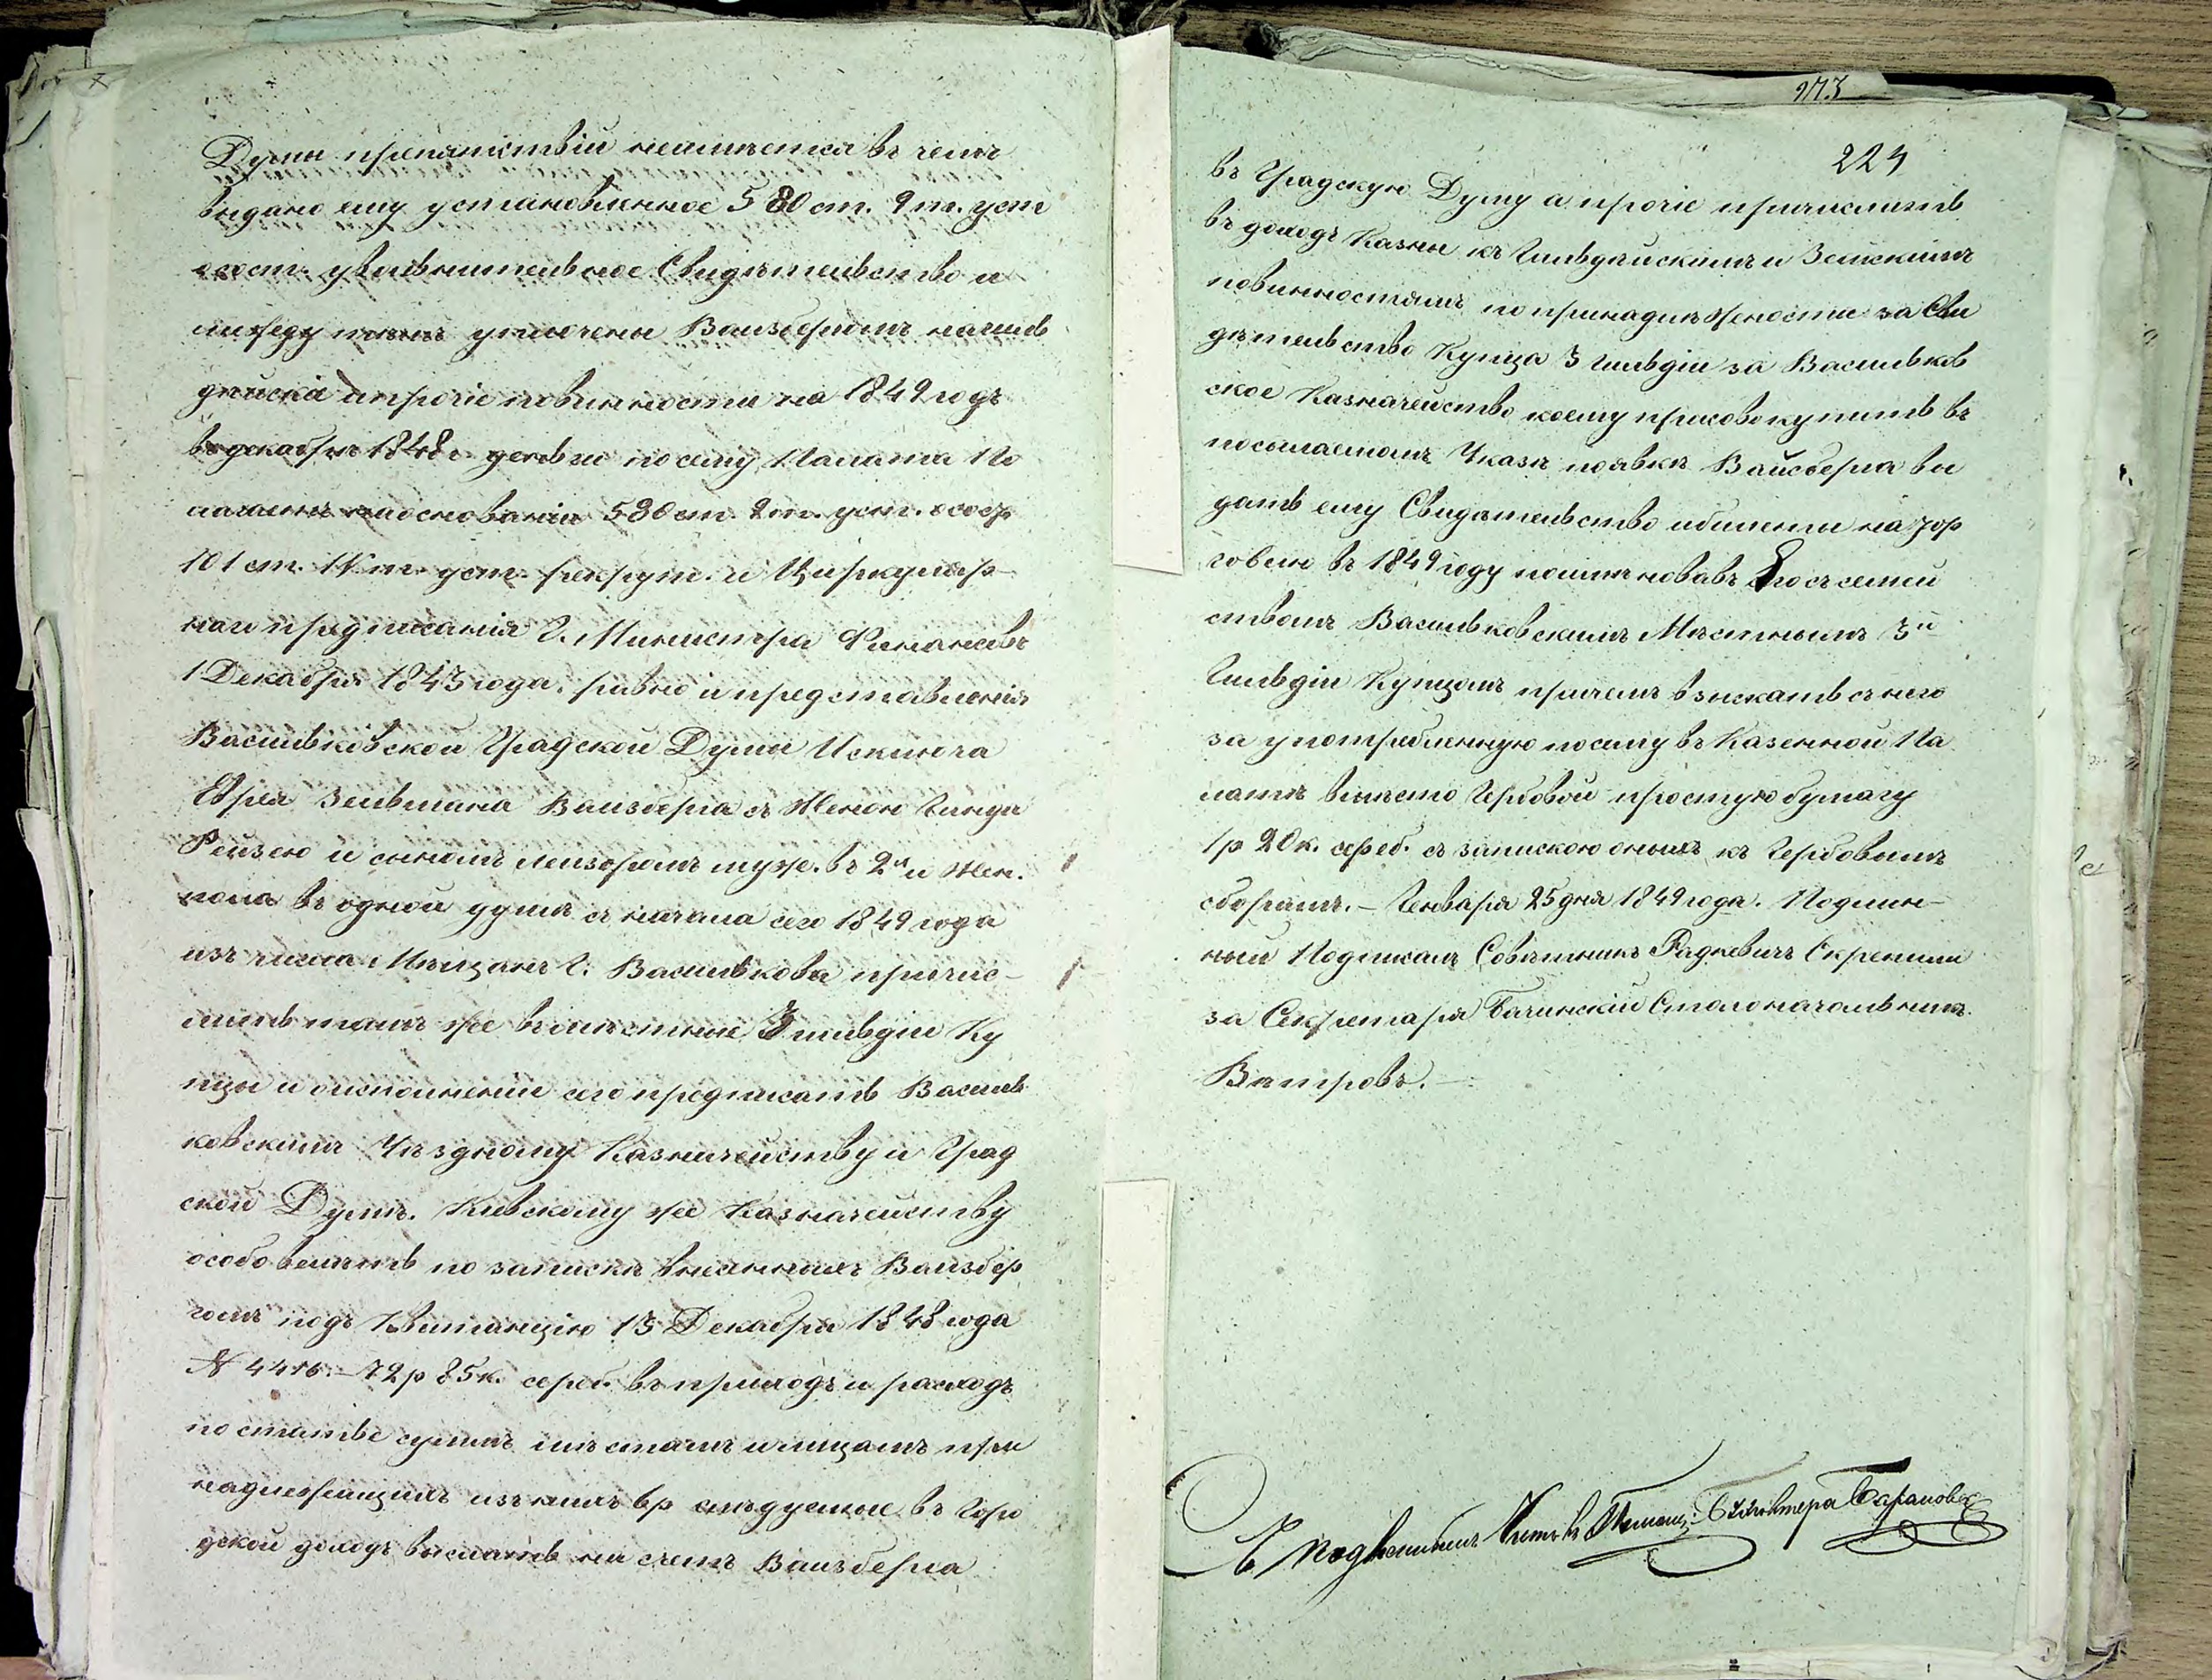 Думы препятствій неимѣется въ чемъ
видано ему установленное 580 ст. 9 т. уст
о сост. увольнительное Свидѣтельство и
между тѣмъ уплочены Ваизбергомъ на гиль
дѣйскія и прочіе повинности на 1849 годъ
въ декабрѣ 1848 г. деньги по сему Палата По
лагаетъ на основаніи 580 ст. 9 т. уст. о сост.
101 ст. IV т. уст. рекрут. и Циркуляр-
наго предписанія Г. Министра Финансовъ
1 Декабря 1843 года. равно и представленія
Васильковской Градской Думы Исключа
Еврея Зельмана Ваизберга съ Женою Гинди
Рейзею и сыномъ Лейзоромъ муж. въ 2хъ и жен.
пола въ одной душѣ съ начала сего 1849 года
изъ числа Мѣщанъ Г. Василькова причис-
лить тамъ же въ мѣстные 3 гильдіи Ку
пцы и о исполненіи сего предписать Василь
ковскимъ Уѣздному Казначейству и Град
ской Думѣ. Кіевскому же Казначейству
особо велѣть по запискѣ внесенныхъ Ваизбер
гомъ подъ Квитанцію 15 Декабря 1848 года
№ 4416.- 72 р 85 к. сереб. въ приходъ и расходъ
по статье суммъ мѣстамъ и лицамъ при
надлежащимъ изъ нихъ 6 р следуемые въ Горо
дской доходъ выслать на счетъ Ваизберга
273
224
въ Градскую Думу а прочіе причислить
въ доходъ Казны къ Гильдѣйскимъ и Земскимъ
повинностямъ по принадлежности за Сви
дѣтельство Купца 3 гильдіи за Васильков
ское Казначейство коему присовокупить въ
посылаемомъ Указѣ по явкѣ Вайсберга вы
дать ему Свидѣтельство и билеты на тор
говлю въ 1849 году поименовавъ Его съ семей
ствомъ Васильковскимъ Мѣстнымъ 3й
Гильдіи Купцомъ причемъ взыскать съ него
за употребленную по сему въ Казенной Па
латѣ вмѣсто Гербовой простую бумагу
1 р 20 к. сереб. съ запискою оныхъ къ Гербовымъ
сборамъ.- Генваря 25 дня 1849 года. Подлин-
ный Подписалъ Совѣтникъ Радкевичъ Скрепили
за Секретаря Бачинскій Столоначальникъ
Вѣтровъ.-
Съ подлиннымъ Бухгалтера Барановъ